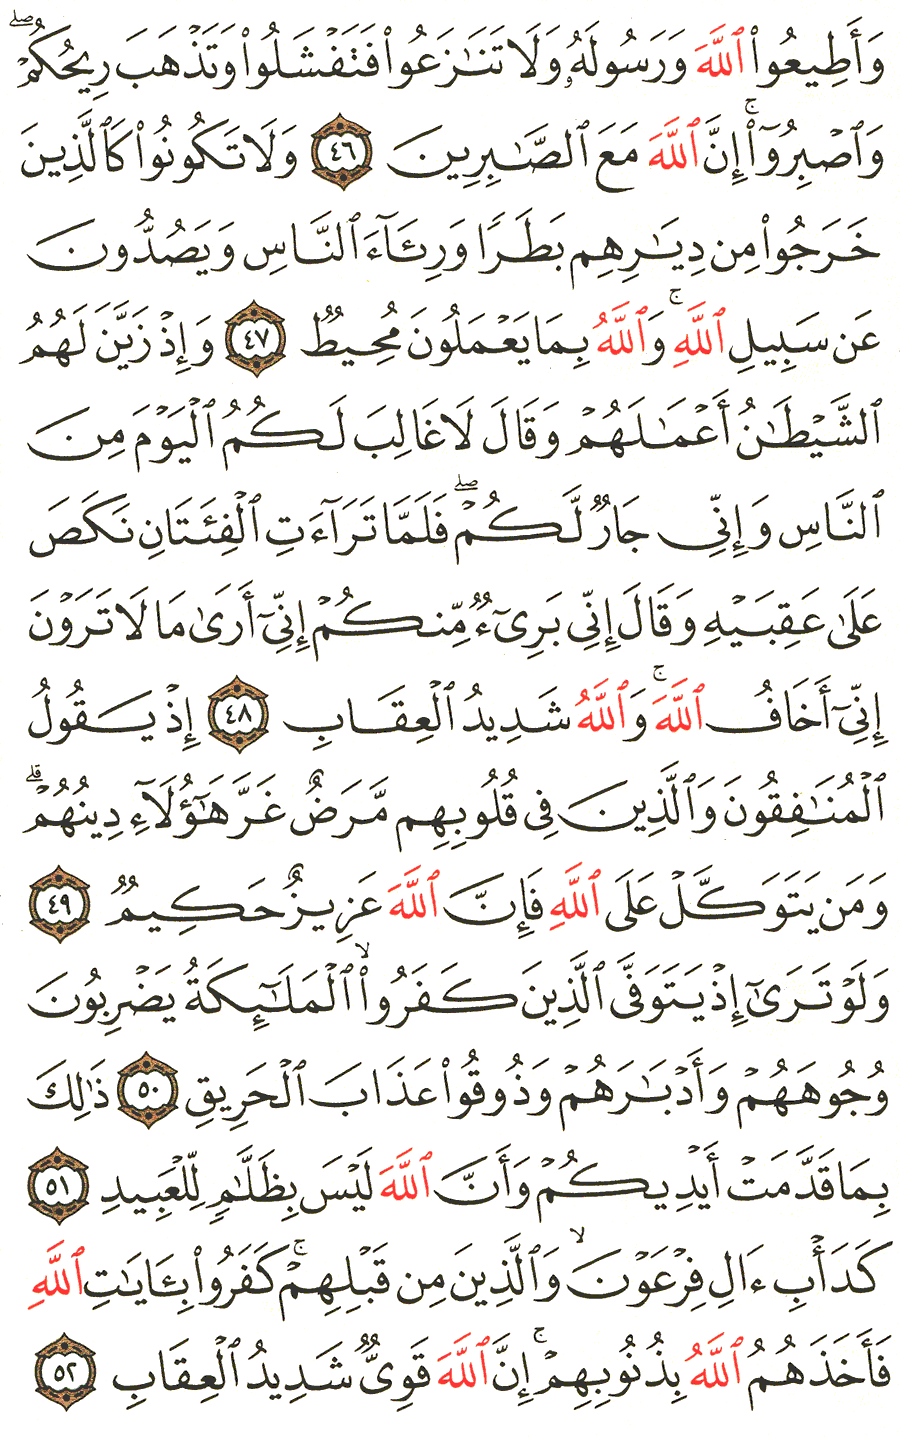 وَأَطِيعُوا۟ ٱللَّهَ وَرَسُولَهُۥ وَلَا تَنَـٰزَعُوا۟ فَتَفْشَلُوا۟ وَتَذْهَبَ رِيحُكُمْ ۖ
وَٱصْبِرُوٓا۟ ۚ إِنَّ ٱللَّهَ مَعَ ٱلصَّـٰبِرِينَ ٤٦ وَلَا تَكُونُوا۟ كَٱلَّذِينَ
خَرَجُوا۟ مِن دِيَـٰرِهِم بَطَرًا وَرِئَآءَ ٱلنَّاسِ وَيَصُدُّونَ
عَن سَبِيلِ ٱللَّهِ ۚ وَٱللَّهُ بِمَا يَعْمَلُونَ مُحِيطٌ ٤٧ وَإِذْ زَيَّنَ لَهُمُ
ٱلشَّيْطَـٰنُ أَعْمَـٰلَهُمْ وَقَالَ لَا غَالِبَ لَكُمُ ٱلْيَوْمَ مِنَ
ٱلنَّاسِ وَإِنِّى جَارٌ لَّكُمْ ۖ فَلَمَّا تَرَآءَتِ ٱلْفِئَتَانِ نَكَصَ
عَلَىٰ عَقِبَيْهِ وَقَالَ إِنِّى بَرِىٓءٌ مِّنكُمْ إِنِّىٓ أَرَىٰ مَا لَا تَرَوْنَ
إِنِّىٓ أَخَافُ ٱللَّهَ ۚ وَٱللَّهُ شَدِيدُ ٱلْعِقَابِ ٤٨ إِذْ يَقُولُ
ٱلْمُنَـٰفِقُونَ وَٱلَّذِينَ فِى قُلُوبِهِم مَّرَضٌ غَرَّ هَـٰٓؤُلَآءِ دِينُهُمْ ۗ
وَمَن يَتَوَكَّلْ عَلَى ٱللَّهِ فَإِنَّ ٱللَّهَ عَزِيزٌ حَكِيمٌ ٤٩
وَلَوْ تَرَىٰٓ إِذْ يَتَوَفَّى ٱلَّذِينَ كَفَرُوا۟ ۙ ٱلْمَلَـٰٓئِكَةُ يَضْرِبُونَ
وُجُوهَهُمْ وَأَدْبَـٰرَهُمْ وَذُوقُوا۟ عَذَابَ ٱلْحَرِيقِ ٥٠ ذَٰلِكَ
بِمَا قَدَّمَتْ أَيْدِيكُمْ وَأَنَّ ٱللَّهَ لَيْسَ بِظَلَّـٰمٍ لِّلْعَبِيدِ ٥١
كَدَأْبِ ءَالِ فِرْعَوْنَ ۙ وَٱلَّذِينَ مِن قَبْلِهِمْ ۚ كَفَرُوا۟ بِـَٔايَـٰتِ ٱللَّهِ
فَأَخَذَهُمُ ٱللَّهُ بِذُنُوبِهِمْ ۚ إِنَّ ٱللَّهَ قَوِىٌّ شَدِيدُ ٱلْعِقَابِ ٥٢